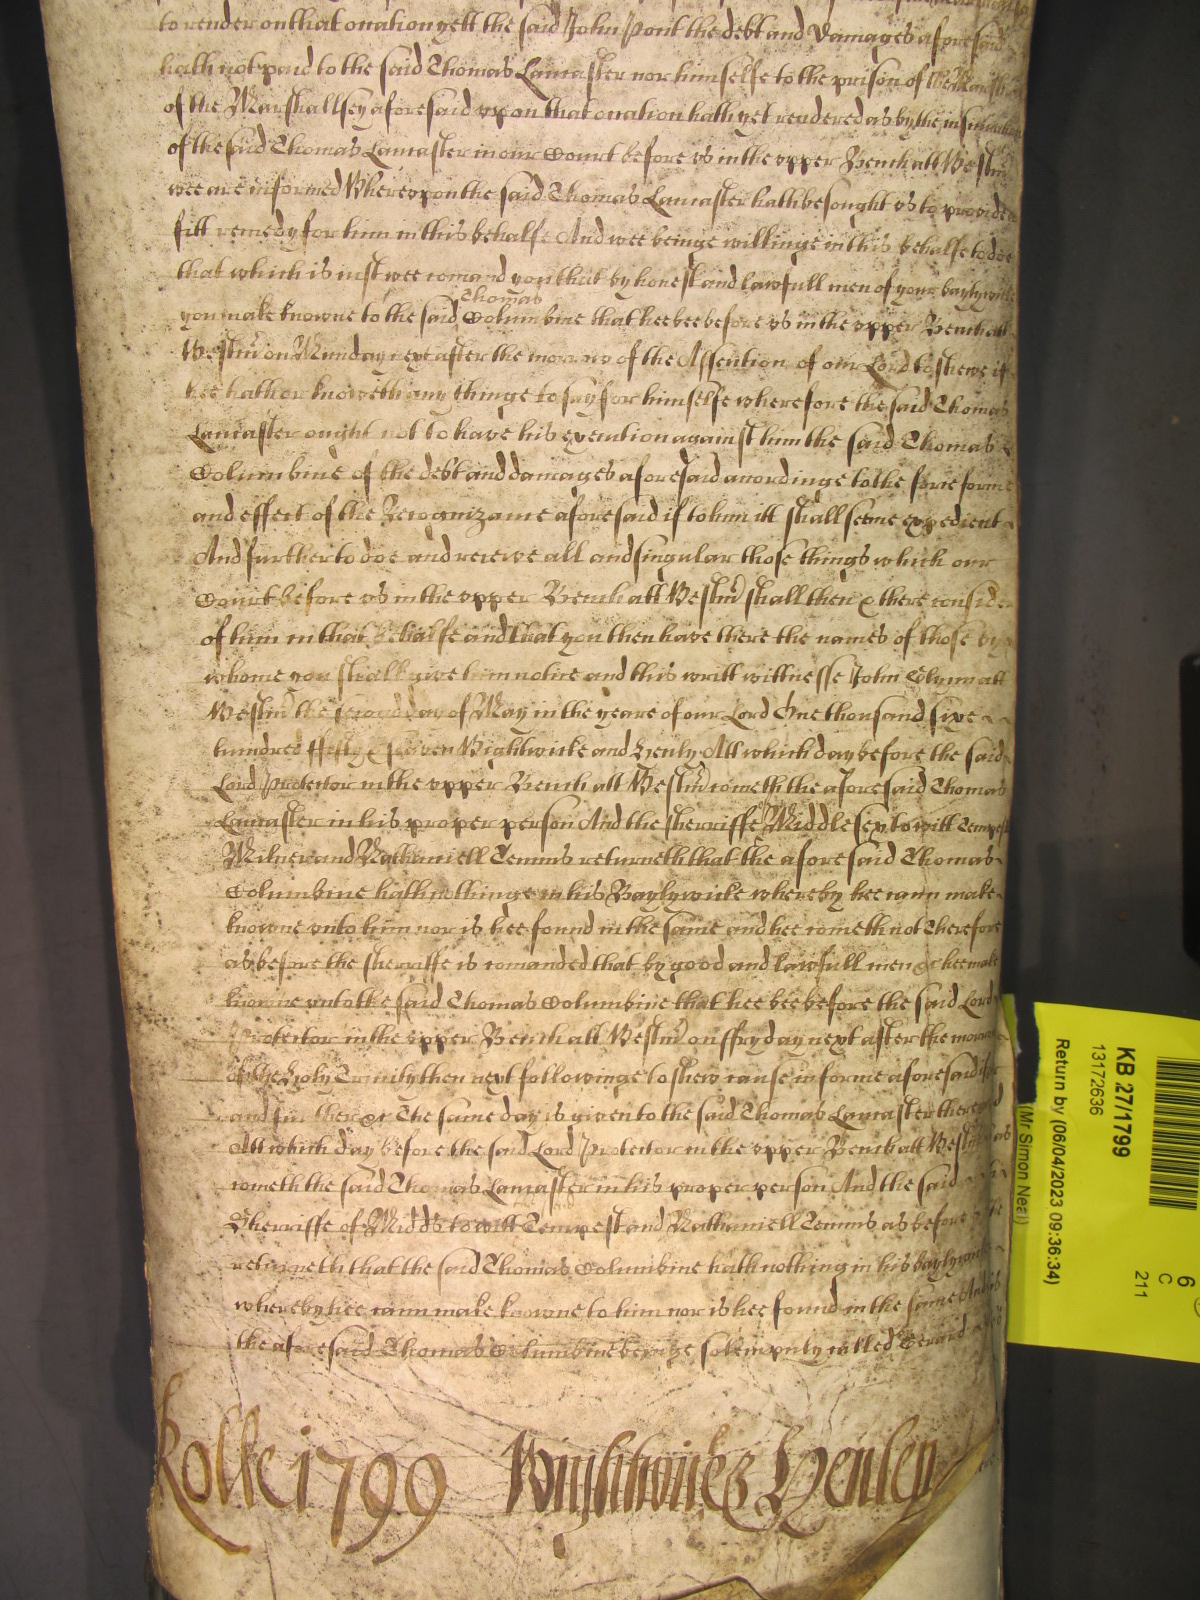 to render on that occation yett the said John Pont the debt and Damages aforesaid
hath not paid to the said Thomas Lancaster nor himselfe to the prison of the Marsh
of the Marshallsey aforesaid vpon that occation hath yet rendered as by the insinuation
of the said Thomas Lancaster in our Court before vs in the vpper Bench att Westm
wee are informed Wherevpon the said Thomas Lancaster hath besought vs to provide a
fitt remedy for him in this behalfe And wee beinge willinge in this behalfe to doe
that which is iust wee comand you that by honest and lawfull men of your baylywicke
you make knowne to the said Thomas Columbine that hee bee before vs in the vpper Bench att
Westm on Munday next after the morrow of the Assention of our Lord to shewe if
hee hath or knoweth any thinge to say for himselfe wherefore the said Thomas
Lancaster ought not to have his execution against him the said Thomas
Columbine of the debt and damages aforesaid accordinge to the force forme
and effect of the Recognizance aforesaid if to him itt shall seeme expedient
And further to doe and receive all and singular those things which our
Court before vs in the vpper Bench att Westm shall then & there consider
of him in that behalfe and that you then have there the names of those by
whome you shall give him notice and this writt wittnesse John Glynn att
Westm the second day of May in the yeare of our Lord One thousand sixe
hundred ffifty & seaven Wightwicke and Henly Att which day before the said
Lord Protector in the vpper Bench att Westm cometh the aforesaid Thomas
Lancaster in his proper person And the sherriffe Middlesex to witt Tempest
Milner and Nathaniell Temms returneth that the aforesaid Thomas
Columbine hath nothinge in his Baylywicke whereby hee cann make
knowne vnto him nor is hee found in the same and hee cometh not Therefore
as before the sherriffe is comanded that by good and lawfull men &c hee make
knowne vnto the said Thomas Columbine that hee bee before the said Lord
Protector in the vpper Bench att Westm on ffryday next after the morrow
of the Holy Trinity then next followinge to shew cause in forme aforesaid if &c
and further &c The same day is given to the said Thomas Lancaster there
Att which day before the said Lord Protector in the vpper Bench att Westm
cometh the said Thomas Lancaster in his proper person And the said
Sherriffe of Midds to witt Tempest and Nathaniell Temms as before
returneth that the said Thomas Columbine hath nothing in his baylywicke
whereby hee cann make knowne to him nor is hee found in the same And
the aforesaid Thomas Columbine beinge solempnly called
Rolle 1799 Wightwicke & Henley
KB 27/1799
13172636
Return by (06/04/2023 09:36:34)
(Mr Simon Neal)
6
C
211